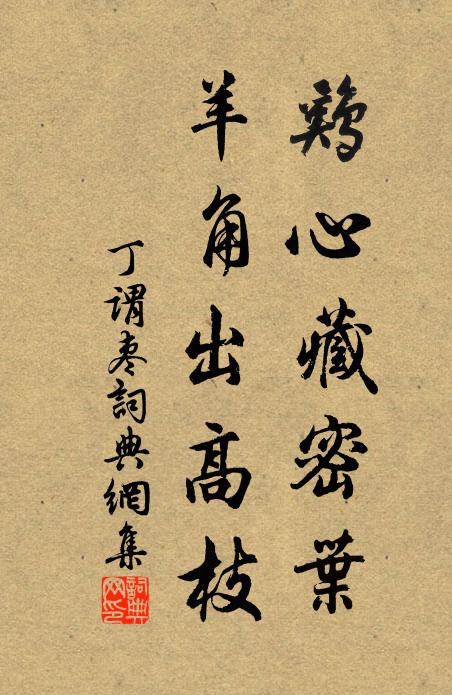 鷄心藏密葉
羊角出高枝
丁謂枣詞典網集
詞典网印